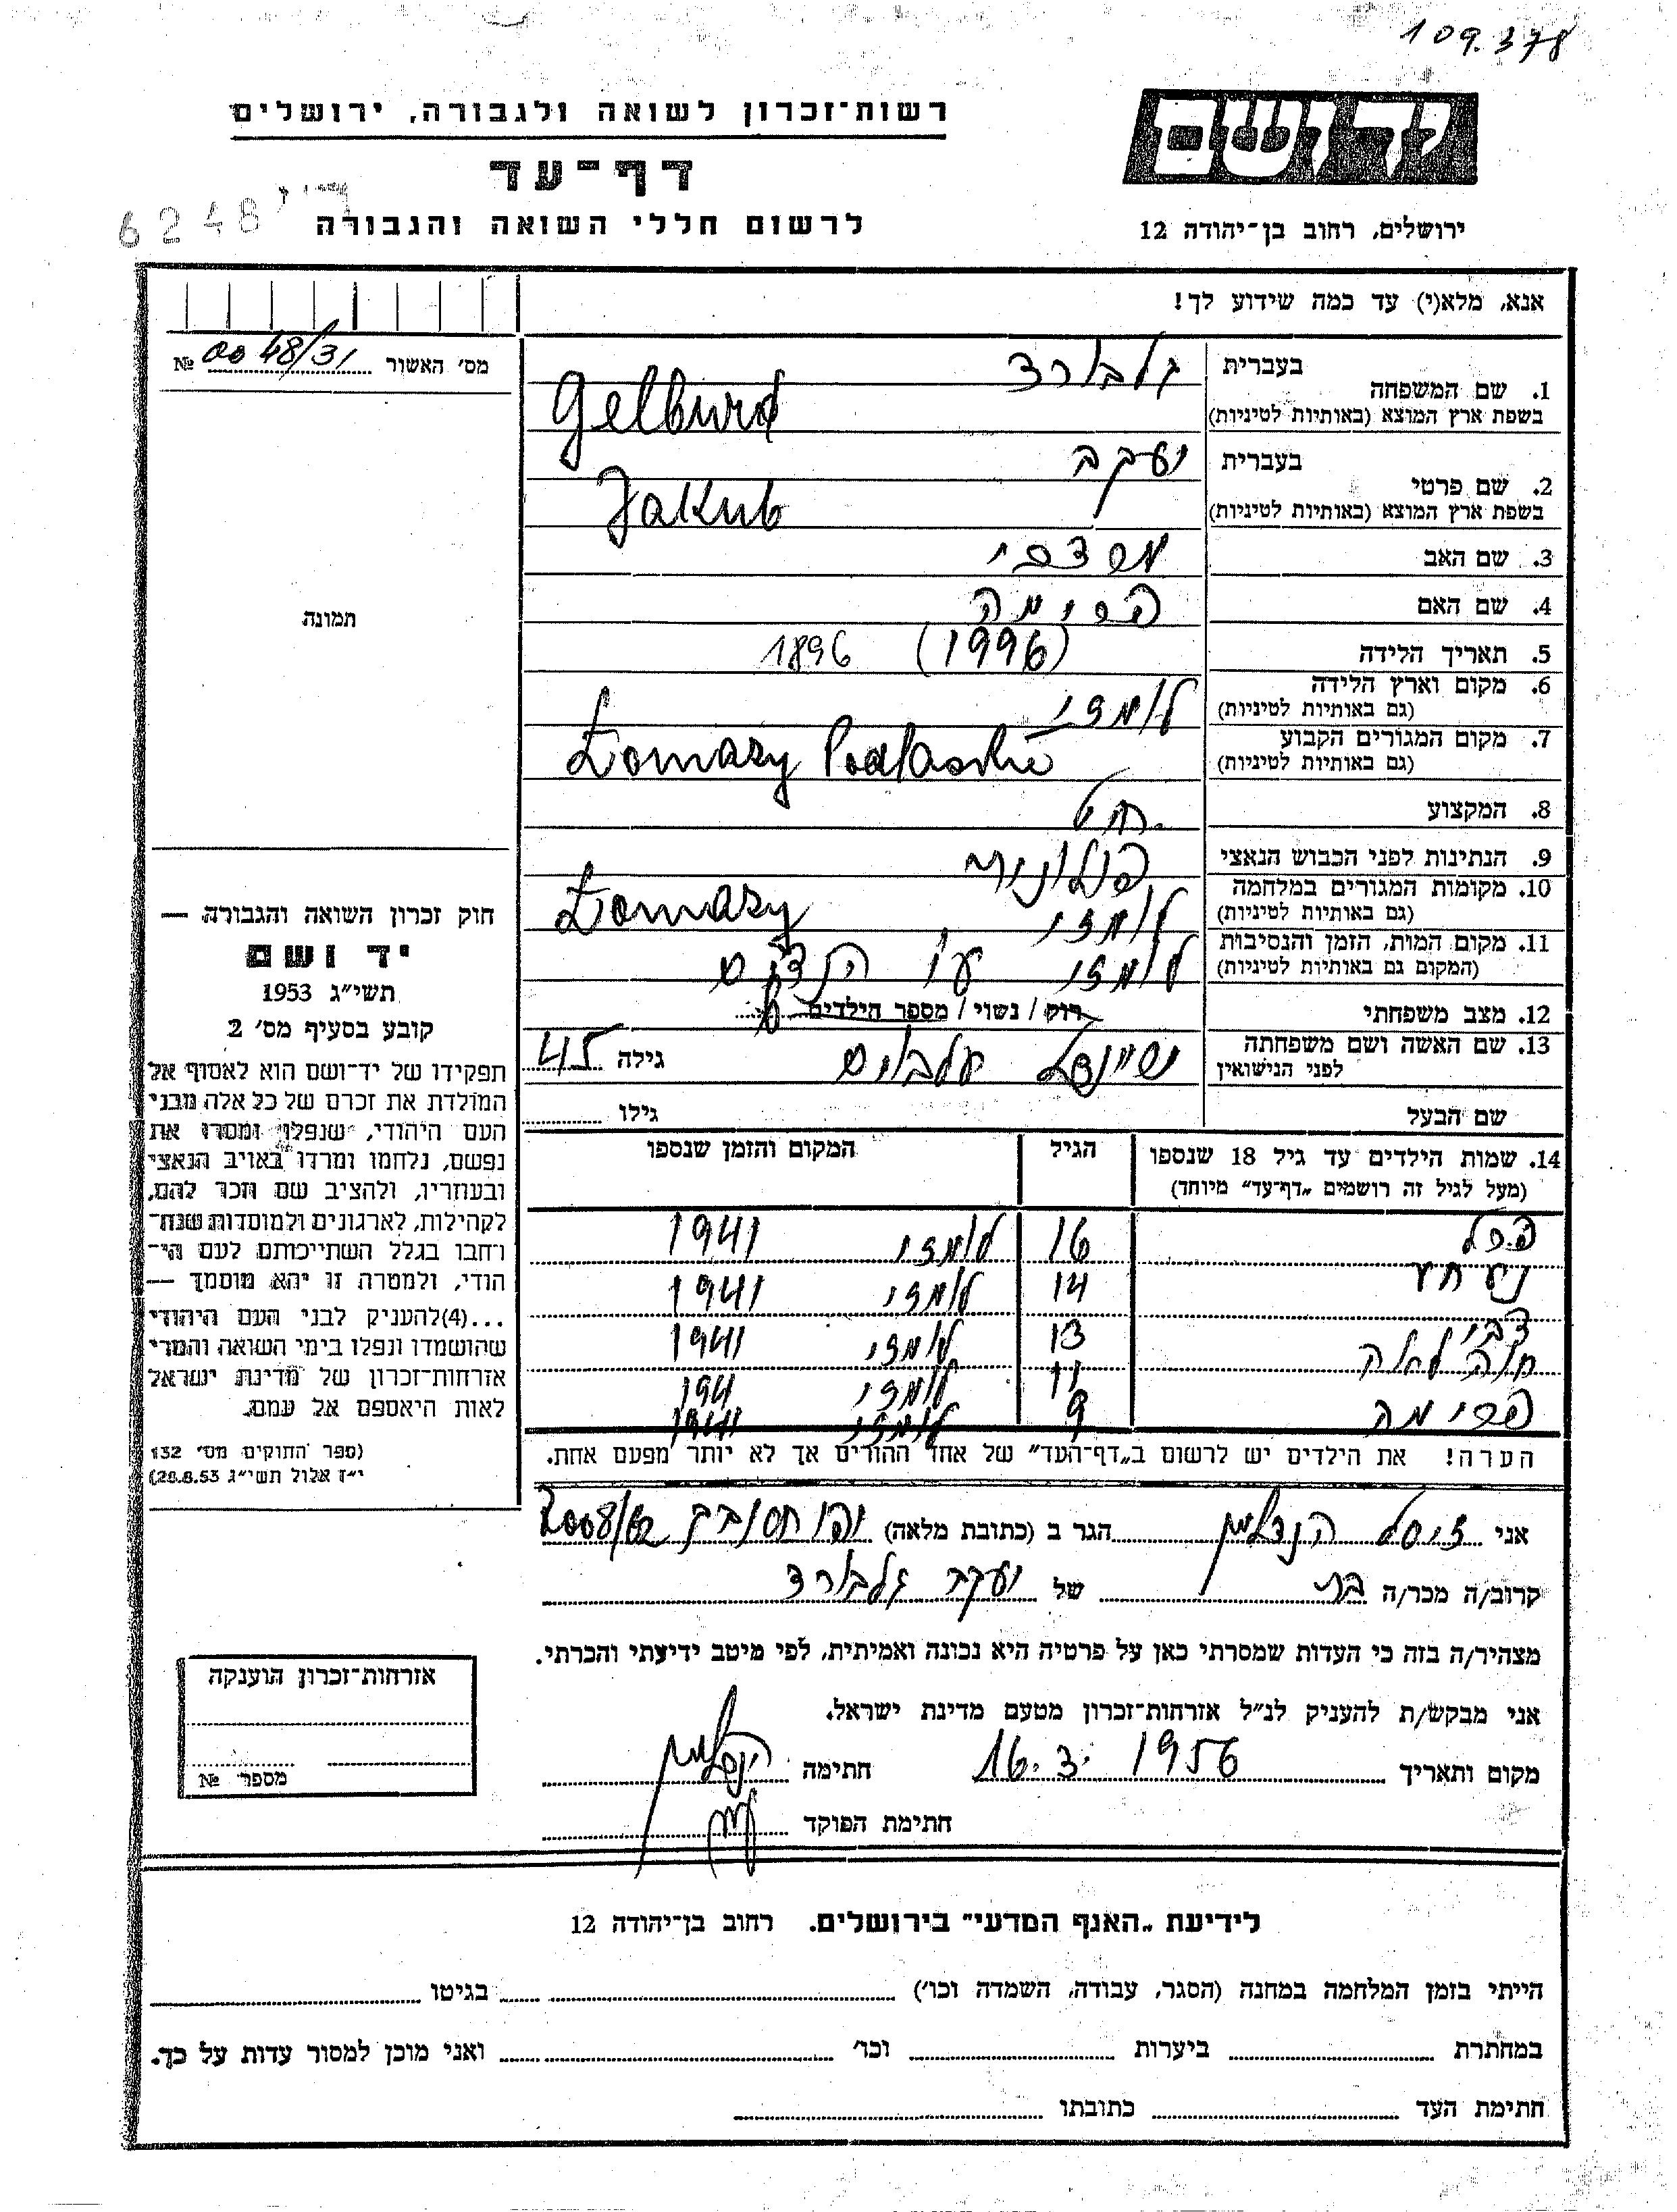 109.378
ידושם
רשות־זכרון לשואה ולגבורה, ירושלים
דף־עד
לרשום חללי השואה והגבורה
6248
ירושלים, רחוב בן־יהודה 12
אנא, מלא(י) עד כמה שידוע לך!
מס׳ האשור № 0048/31
1. שם המשפחה בעברית גלבורד
בשפת ארץ המוצא (באותיות לטיניות) Gelburd
2. שם פרטי בעברית יעקב
בשפת ארץ המוצא (באותיות לטיניות) Jakub
3. שם האב מרדכי
4. שם האם פרימה
5. תאריך הלידה (1996) 1896
6. מקום וארץ הלידה לומזי
(גם באותיות לטיניות)
7. מקום המגורים הקבוע Łomazy Podlaskie
(גם באותיות לטיניות)
8. המקצוע חיט
9. הנתינות לפני הכבוש הנאצי פולונית
10. מקומות המגורים במלחמה לומזי Łomazy
(גם באותיות לטיניות)
11. מקום המות, הזמן והנסיבות לומזי ע״י
(המקום גם באותיות לטיניות)
12. מצב משפחתי רוק / נשוי / מספר הילדים
13. שם האשה ושם משפחתה לפני הנישואין שיינדל גילה 45
שם הבעל גילו
14. שמות הילדים עד גיל 18 שנספו
(מעל לגיל זה רושמים „דף־עד״ מיוחד)
הגיל
המקום והזמן שנספו
16 לומזי 1941
14 לומזי 1941
צבי 13 לומזי 1941
חוה 11 לומזי 1941
פרימה 9 לומזי 1941
הערה! את הילדים יש לרשום ב„דף־העד״ של אחד ההורים אך לא יותר מפעם אחת.
תמונה
חוק זכרון השואה והגבורה —
יד ושם
תשי״ג 1953
קובע בסעיף מס׳ 2
תפקידו של יד־ושם הוא לאסוף אל
המולדת את זכרם של כל אלה מבני
העם היהודי, שנפלו ומסרו את
נפשם, נלחמו ומרדו באויב הנאצי
ובעוזריו, ולהציב שם וזכר להם,
לקהילות, לארגונים ולמוסדות שנח־
רחבו בגלל השתייכותם לעם הי־
הודי, ולמטרה זו יהא מוסמך —
...(4)להעניק לבני העם היהודי
שהושמדו ונפלו בימי השואה והמרי
אזרחות־זכרון של מדינת ישראל
לאות היאספם אל עמם.
(ספר החוקים מס׳ 132
י״ז אלול תשי״ג 28.8.53)
אני זיסל הנדלמן הגר ב (כתובת מלאה)
קרוב/ה מכר/ה בת של יעקב גלבורד
מצהיר/ה בזה כי העדות שמסרתי כאן על פרטיה היא נכונה ואמיתית, לפי מיטב ידיעתי והכרתי.
אני מבקש/ת להעניק לנ״ל אזרחות־זכרון מטעם מדינת ישראל.
מקום ותאריך 16.3.1956 חתימה הנדלמן
חתימת הפוקד
אזרחות־זכרון הוענקה
מספר №
לידיעת „האגף המדעי״ בירושלים. רחוב בן־יהודה 12
הייתי בזמן המלחמה במחנה (הסגר, עבודה, השמדה וכו׳) בגיטו
במחתרת ביערות וכו׳ ואני מוכן למסור עדות על כך.
חתימת העד כתובתו